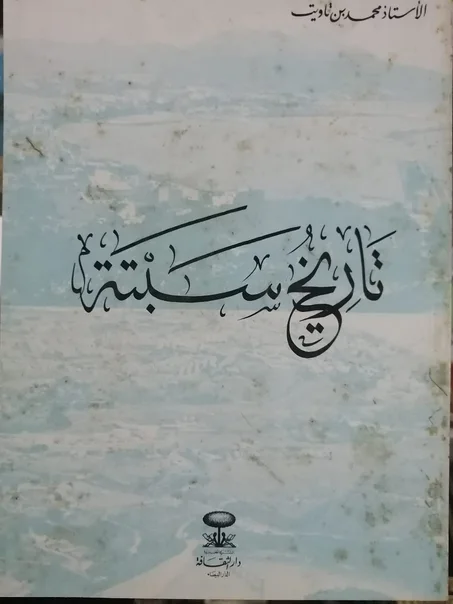 الأستاذ محمد بن تاويت
تَارِيخُ سَبْتَة
دار الثقافة
الدار البيضاء